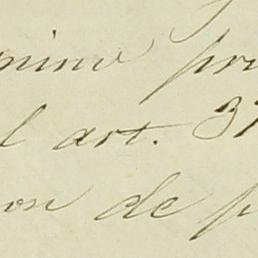 mino pri
l art. 37
on de p